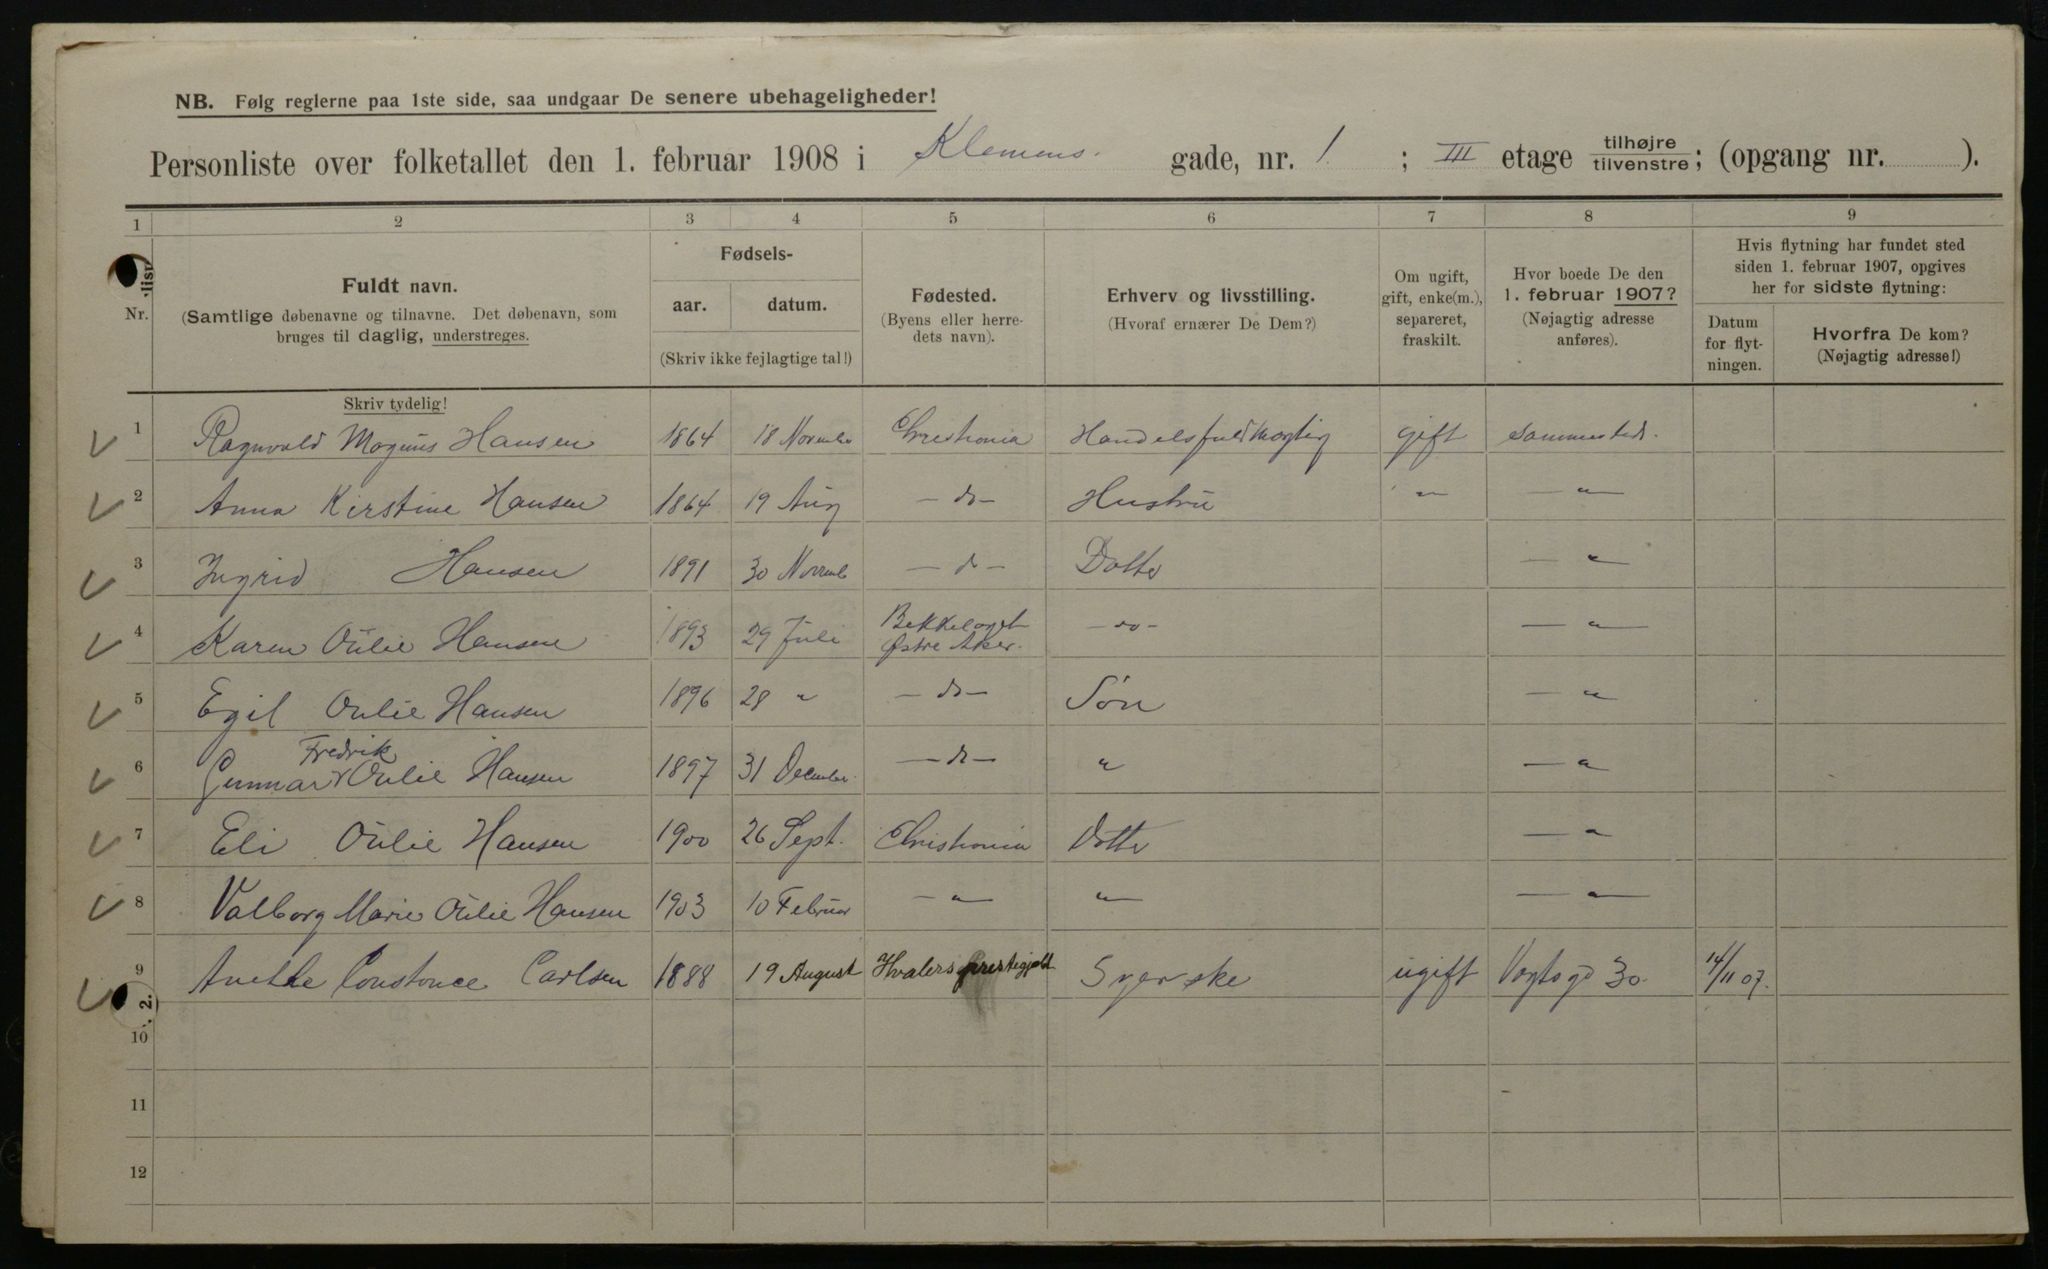 NB. Følg reglerne paa 1ste side, saa undgaar De senere ubehageligheder!
Personliste over folketallet den 1. februar 1908 i Klemens gade, nr. 1 ; III etage tilhøjre tilvenstre; (opgang nr. ).
1 2 3 4 5 6 7 8 9
Nr.
Fuldt navn.
(Samtlige døbenavne og tilnavne. Det døbenavn, som
bruges til daglig, understreges.
Skriv tydelig!
Fødsels-
aar. datum.
(Skriv ikke fejlagtige tal!)
Fødested.
(Byens eller herre-
dets navn).
Erhverv og livsstilling.
(Hvoraf ernærer De Dem?)
Om ugift,
gift, enke(m.),
separeret,
fraskilt.
Hvor boede De den
1. februar 1907?
(Nøjagtig adresse
anføres).
Hvis flytning har fundet sted
siden 1. februar 1907, opgives
her for sidste flytning:
Datum
for flyt-
ningen.
Hvorfra De kom?
(Nøjagtig adresse!)
1 Ragnvald Magnus Hansen 1864 18 Novembr Christiania Handelsfuldmægtig gift sammesteds.
2 Anna Kirstine Hansen 1864 19 Aug — do — Hustru " — " —
3 Ingrid Hansen 1891 30 Novemb — do — Datter — " —
4 Karen Oulie Hansen 1893 29 Juli Bekkelaget Østre Aker. — do — — " —
5 Egil Oulie Hansen 1896 28 " — do — Søn — " —
6 Gunnar Fredrik Oulie Hansen 1897 31 December — do — " — " —
7 Eli Oulie Hansen 1900 26 Sept. Christiania Datter — " —
8 Valborg Marie Oulie Hansen 1903 10 Februar — " — " — " —
9 Anethe Constance Carlsen 1888 19 August Hvalers prestegjeld Syerske ugift Vogtsgd 30. 14/11 07.
10
11
12